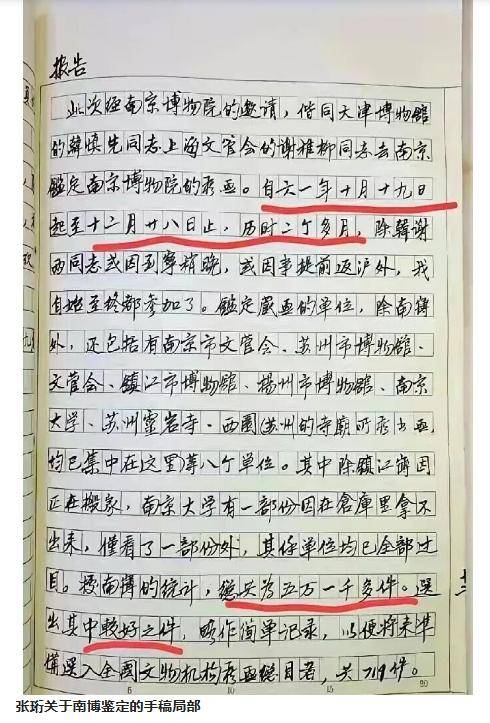 报告
此次经南京博物院的邀请，偕同天津博物館
的韓慎先同志上海文管会的谢稚柳同志去南京
鉴定南京博物院的藏画。自六一年十月十九日
起至十二月廿八日止，历时二个多月，除韓谢
两同志或因到寧稍晚，或因事提前返沪外，我
自始至终都参加了。鑑定藏画的单位，除南博
外，还包括有南京市文管会、苏州市博物館、
文管会、镇江市博物館、揚州市博物館、南京
大学、苏州靈岩寺、西園(苏州的寺廟所藏书画，
均已集中在这里)等八个单位。其中除镇江尚因
正在搬家，南京大学有一部份因在倉庫里拿不
出来，僅看了一部份外，其余单位均已全部过
目。据南博的统计，總共为五万一千多件。選
出其中較好之件，略作简单记录，以便将来準
備選入全國文物机构藏画總目者，共719件。
5 10 15 20
张珩关于南博鉴定的手稿局部